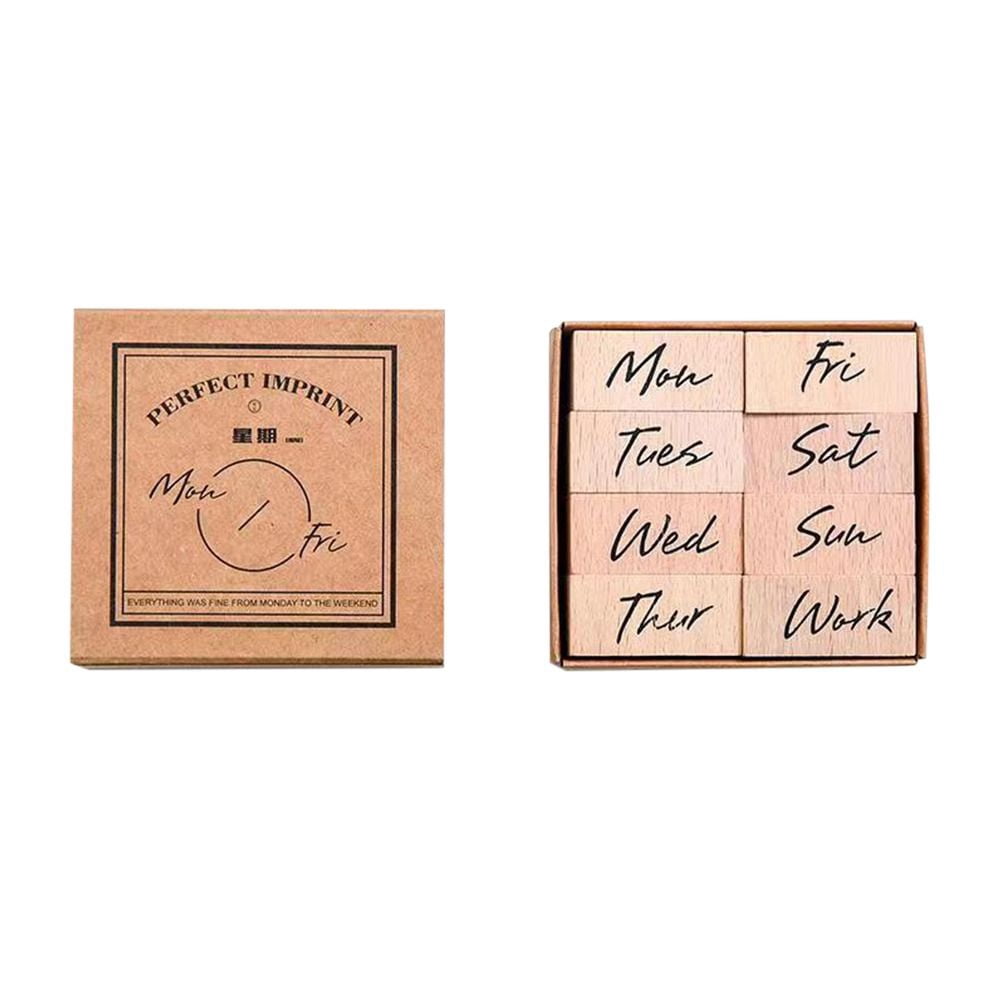 PERFECT IMPRINT
星期
Mon
Fri
EVERYTHING WAS FINE FROM MONDAY TO THE WEEKEND
Mon
Fri
Tues
Sat
Wed
Sun
Thur
Work